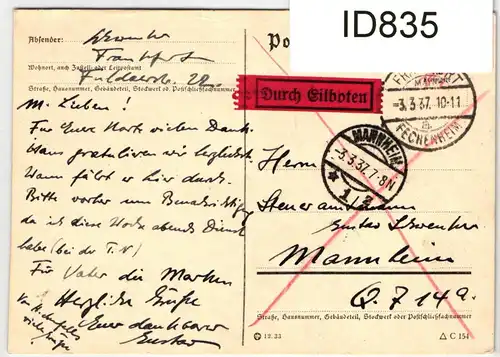 ID835
Absender:
Frankfurt
Wohnort, auch Zustell- oder Leitpostamt
Straße, Hausnummer, Gebäudeteil, Stockwerk od. Postschließfachnummer
Po
Durch Eilboten
-3.3.37. 10-11
FECHENHEIM
MANNHEIM
-3.3.37. 7-8N
1 2
M. Lieben!
Für Eure Karte vielen Dank
gratulieren wir herzlichst.
Wann fährt er hier durch.
Bitte vorher um Benachrichtigung
da ich diese Woche abends Dienst
habe (bei der T.N)
Für Vater die Marken
Herzliche Grüße
Euer dankbarer
Gustav
viele Grüße
Herrn
Steueramtmann
Gustav
Mannheim
Q. 7 14a.
Straße, Hausnummer, Gebäudeteil, Stockwerk oder Postschließfachnummer
12.33
C 154